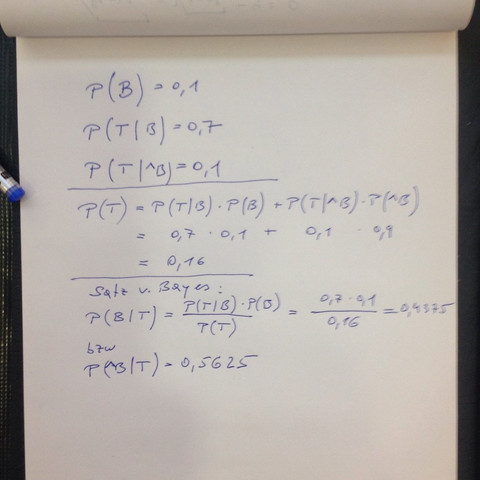 P(B) = 0,1
P(T|B) = 0,7
P(T|^B) = 0,1
P(T) = P(T|B) · P(B) + P(T|^B) · P(^B)
= 0,7 · 0,1 + 0,1 · 0,9
= 0,16
Satz v. Bayes:
P(B|T) = P(T|B) · P(B) / P(T) = 0,7 · 0,1 / 0,16 = 0,4375
bzw
P(^B|T) = 0,5625